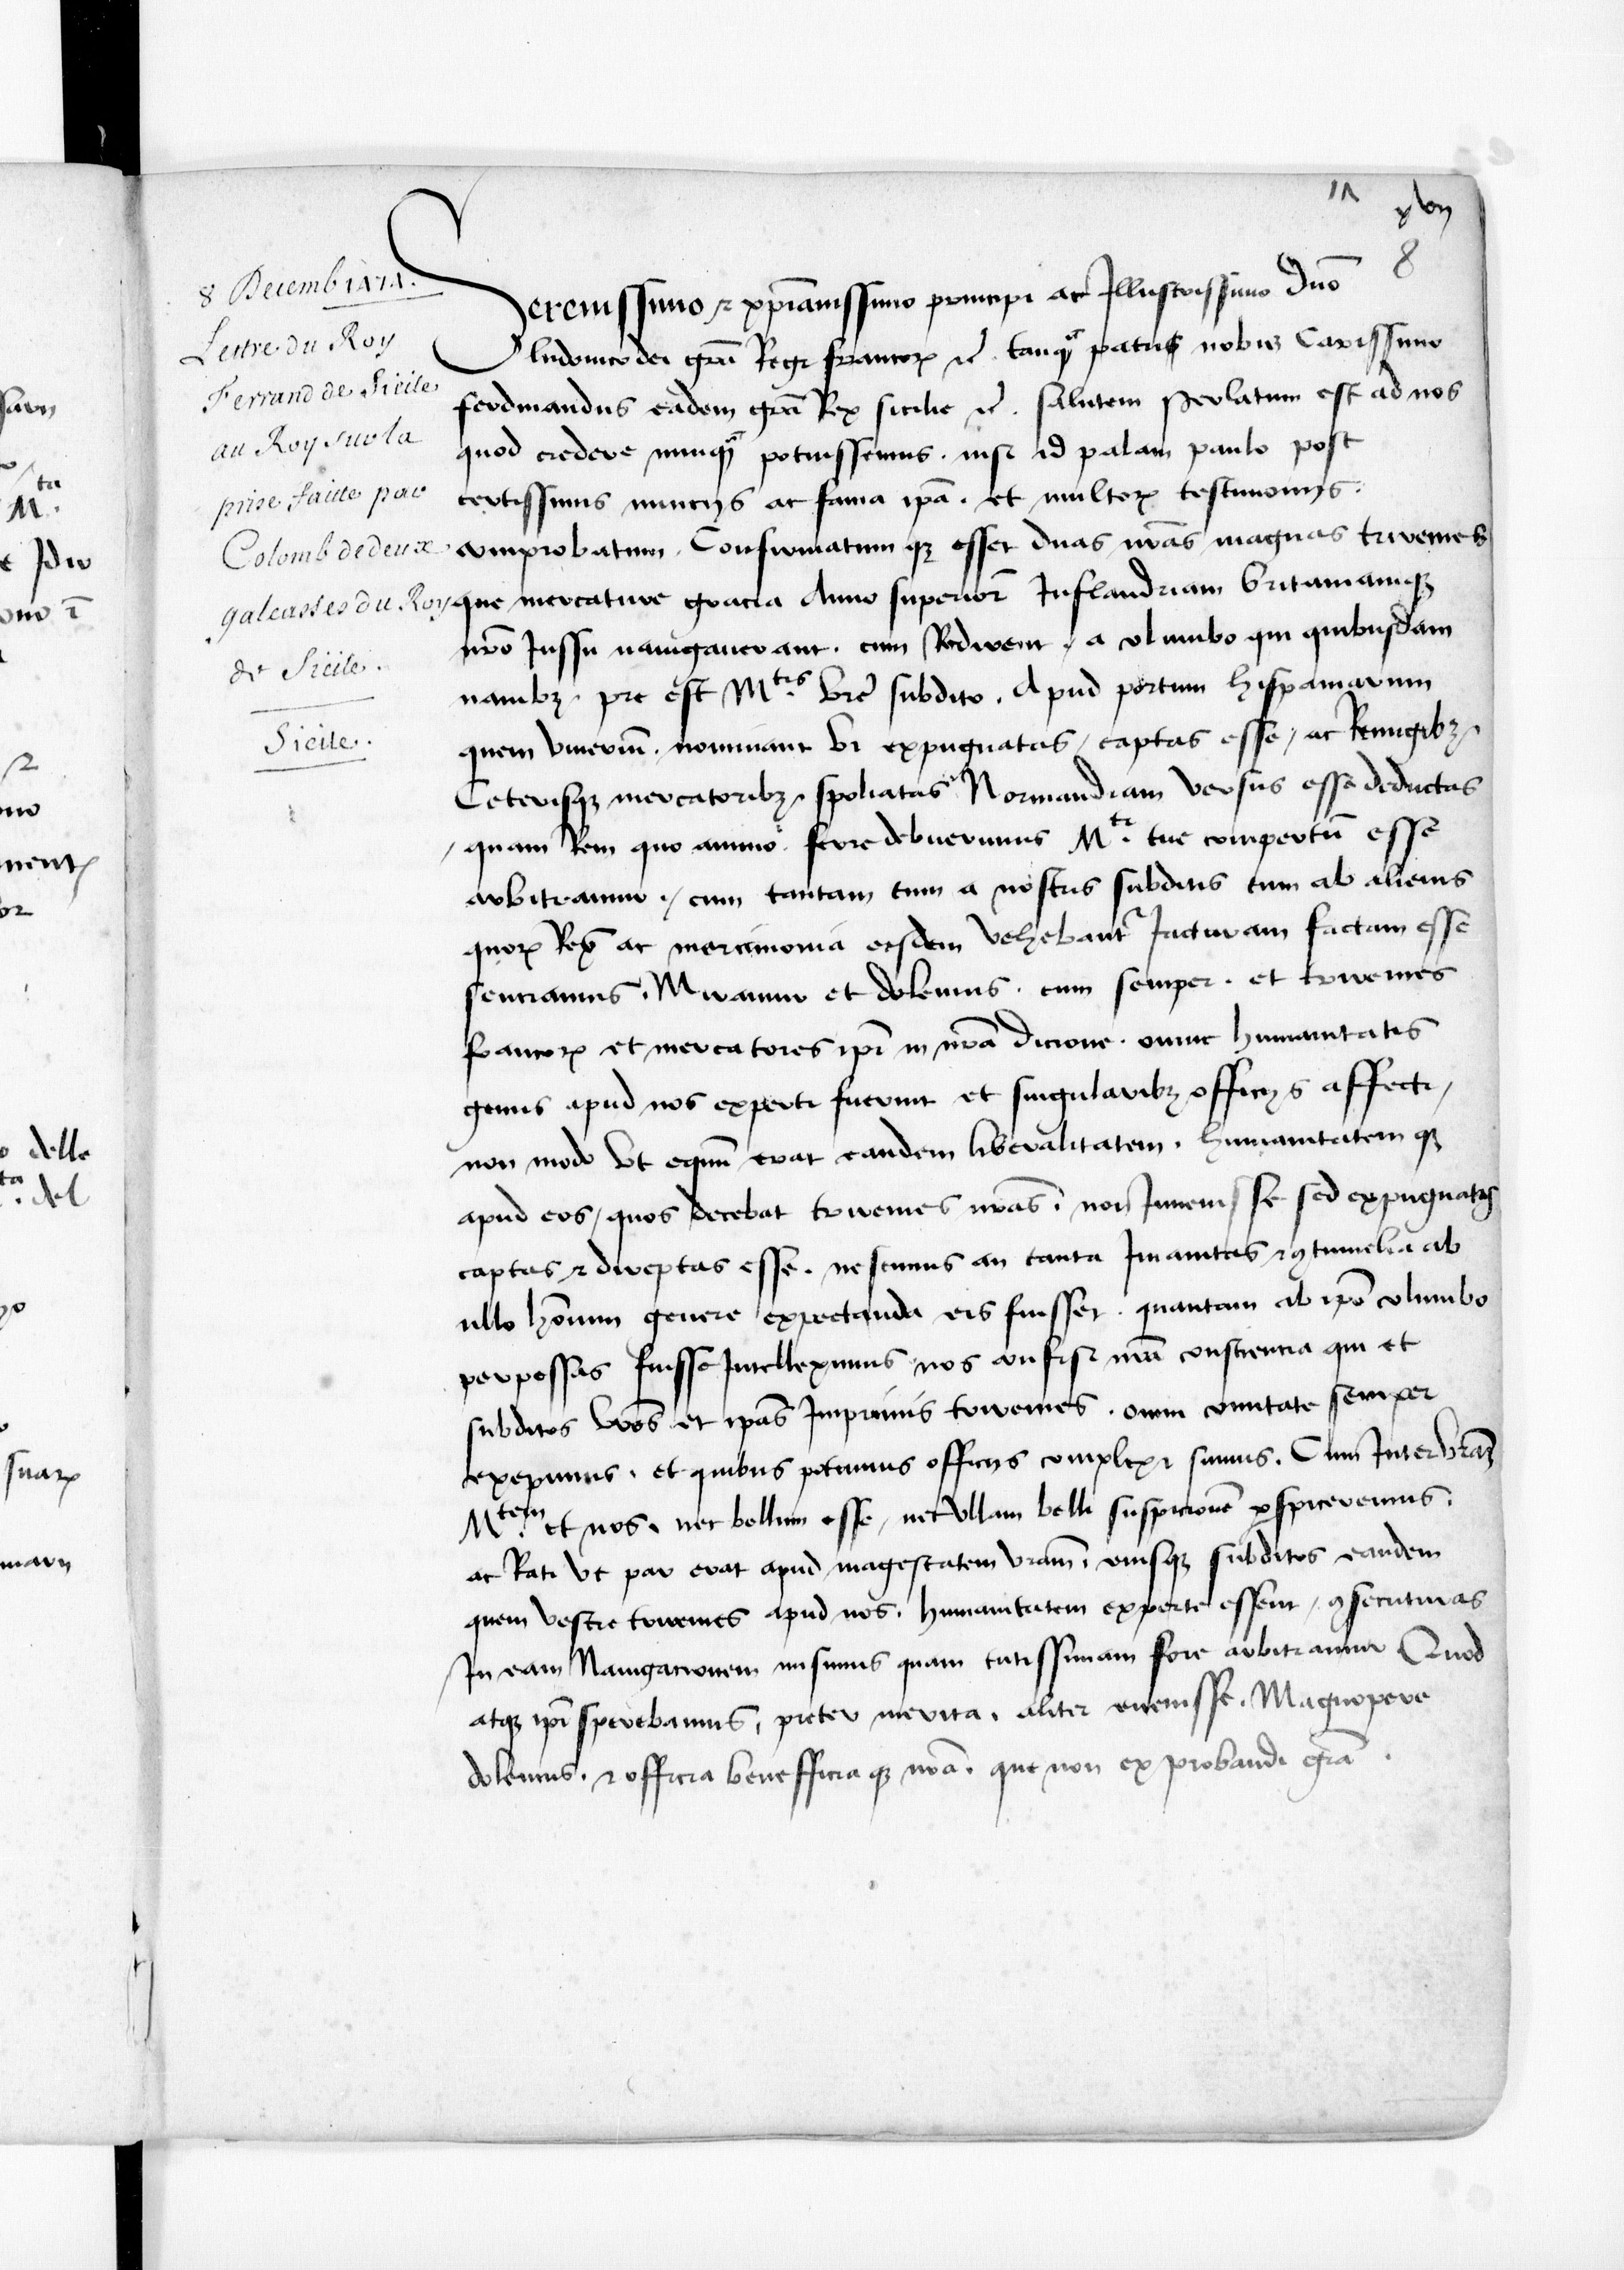 xvij
8
8 Decemb 1474.
Lettre du Roy
Ferrand de Sicile
au Roy sur la
prise faitte par
Colomb de deux
galeasses du Roy
de Sicile.
Sicile.
Serenissimo ⁊ xp̄ianissimo principi ac Illustrissimo Dn̄o
ludouico dei gr̄a Regi francoꝝ ⁊c̄. tanqᵃ̄ patri nobis Carissimo
ferdinandus eadem gr̄a Rex sicilie ⁊c̄. salutem perlatum est ad nos
quod credere nunqᵃ̄ potuissemus. nisi id palam paulo post
certissimis nuncijs ac fama ip̄a. et multoꝝ testimonijs.
comprobatum. Confirmatum qꝫ esset duas nr̄as magnas triremes
que mercature gracia Anno superiori Inflandriam britaniamqꝫ
nr̄o Jussu nauigauerant. cum Redirent, a columbo qui quibusdam
nauibꝫ. pre est Mᵗⁱˢ. vr̄e subdito. Apud portum hispaniarum
quem viueriū. nominant vi expugnatas, captas esse, ac Remigibꝫ,
Ceterisqꝫ mercatoribꝫ, spoliatas Normandiam versus esse deductas
, quam Rem quo animo. ferre debuerimus Mᵗⁱ. tue compertū esse
arbitramur., cum tantam tum a nostris subditis tum ab alienis
quoꝝ Res ac mercimonia eisdem vehebantʳ Jacturam factam esse
senciamus. Miramur et dolemus. cum semper. et triremes
francoꝝ et mercatores ip̄i in nr̄a dicione. omne humanitatis
genus apud nos experti fuerint et singularibꝫ officijs affecti,
non modo vt equū erat eandem liberalitatem. humanitatem qꝫ
apud eos, quos decebat triremes nr̄as. non Inuenisse sed expugnatas
captas ⁊ direptas esse. nescimus an tanta Imanitas ⁊ ꝯtumelia ab
ullo hōīnum genere expectanda eis fuisset. quantam ab ip̄o columbo
perpessas fuisse Intelleximus nos confisi nr̄a consciencia qui et
subditos vr̄os et ip̄as Imprimis triremes. omni comitate semper
excepimus. et quibus potuimus officijs complexi sumus. Cum Inter vr̄am
Mᵗᵉᵐ. et nos. nec bellum esse, nec vllam belli suspicionē ꝑspiceremus.
ac Rati vt par erat apud magestatem vr̄am. eiusqꝫ subditos eandem
quem vestre triremes apud nos. humanitatem experte essent, ꝯsecuturas
In eam Nauigacionem misimus quam tutissimam fore arbitramur Quod
atqꝫ ip̄i sperebamus, preter merita. aliter euenisse. Magnopere
dolemus. ⁊ officia benefficia qꝫ nr̄a. que non exprobandi gr̄a.